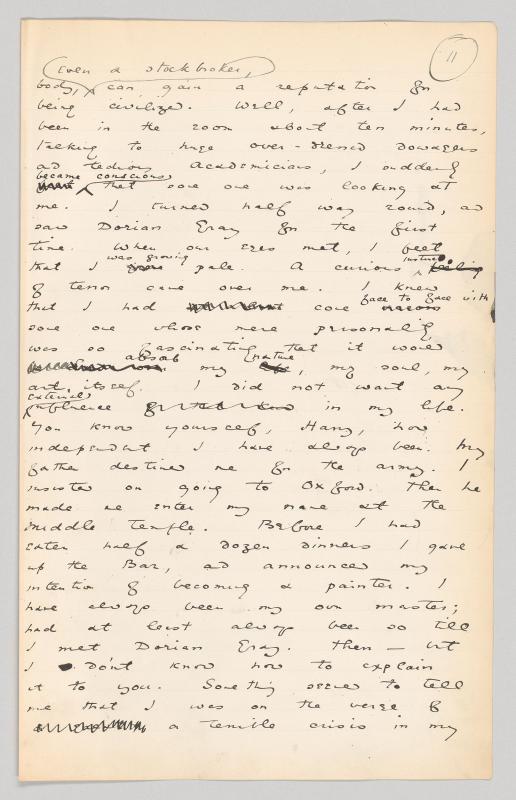 11
even a stockbroker,
body, can gain a reputation for
being civilized. Well, after I had
been in the room about ten minutes,
talking to huge over-dressed dowagers
and tedious Academicians, I suddenly
became conscious
that some one was looking at
me. I turned half way round, and
saw Dorian Gray for the first
time. When our eyes met, I felt
was growing instinct
that I pale. A curious
of terror came over me. I knew
face to face with
that I had come
some one whose mere personality
was so fascinating that it would
absorb nature
my , my soul, my
art itself. I did not want any
external
influence in my life.
You know yourself, Harry, how
independent I have always been. My
father destined me for the army. I
insisted on going to Oxford. Then he
made me enter my name at the
Middle Temple. Before I had
eaten half a dozen dinners I gave
up the Bar, and announced my
intention of becoming a painter. I
have always been my own master;
had at least always been so till
I met Dorian Gray. Then — but
I don't know how to explain
it to you. Something seemed to tell
me that I was on the verge of
a terrible crisis in my